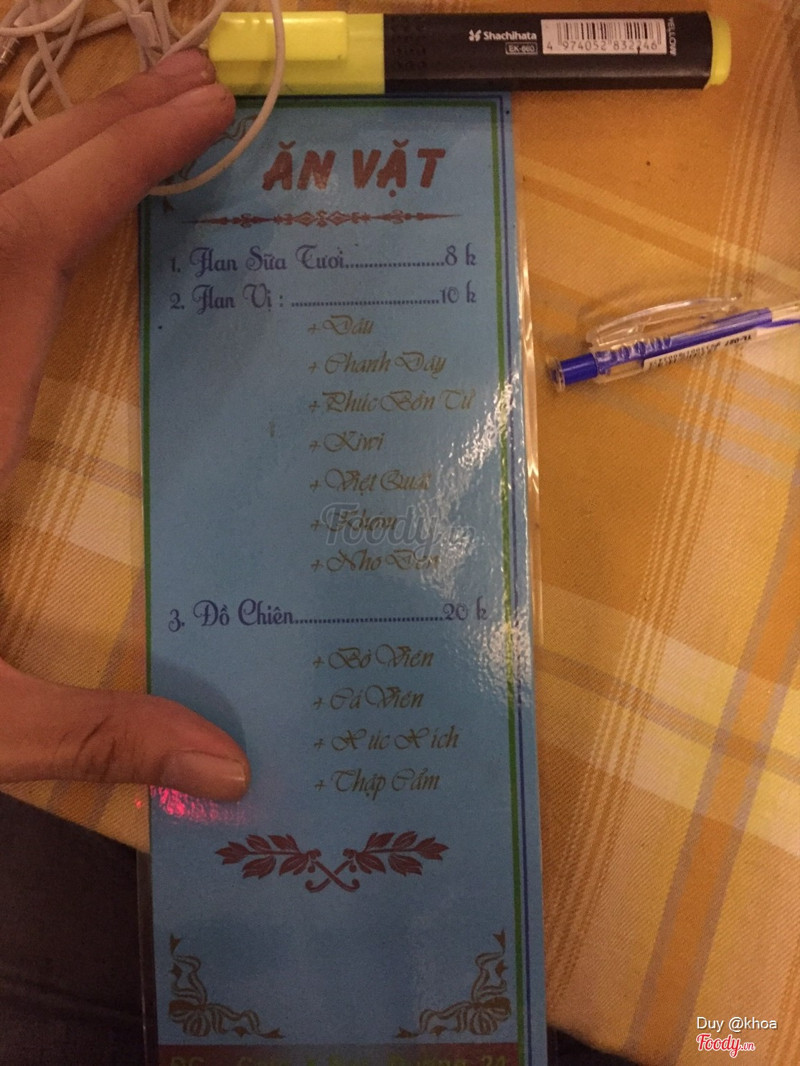 Shachihata
EK-660
4 974052 832246
YELLOW
ĂN VẶT
1. Flan Sữa Tươi.....................8 k
2. Flan Vị : ................................10 k
+ Dâu
+ Chanh Dây
+ Phúc Bồn Tử
+ Kiwi
+ Việt Quất
Foody.vn
+ Nho Đen
3. Đồ Chiên................................20 k
+ Bò Viên
+ Cá Viên
+ Xúc Xích
+ Thập Cẩm
Duy @khoa
Foody.vn